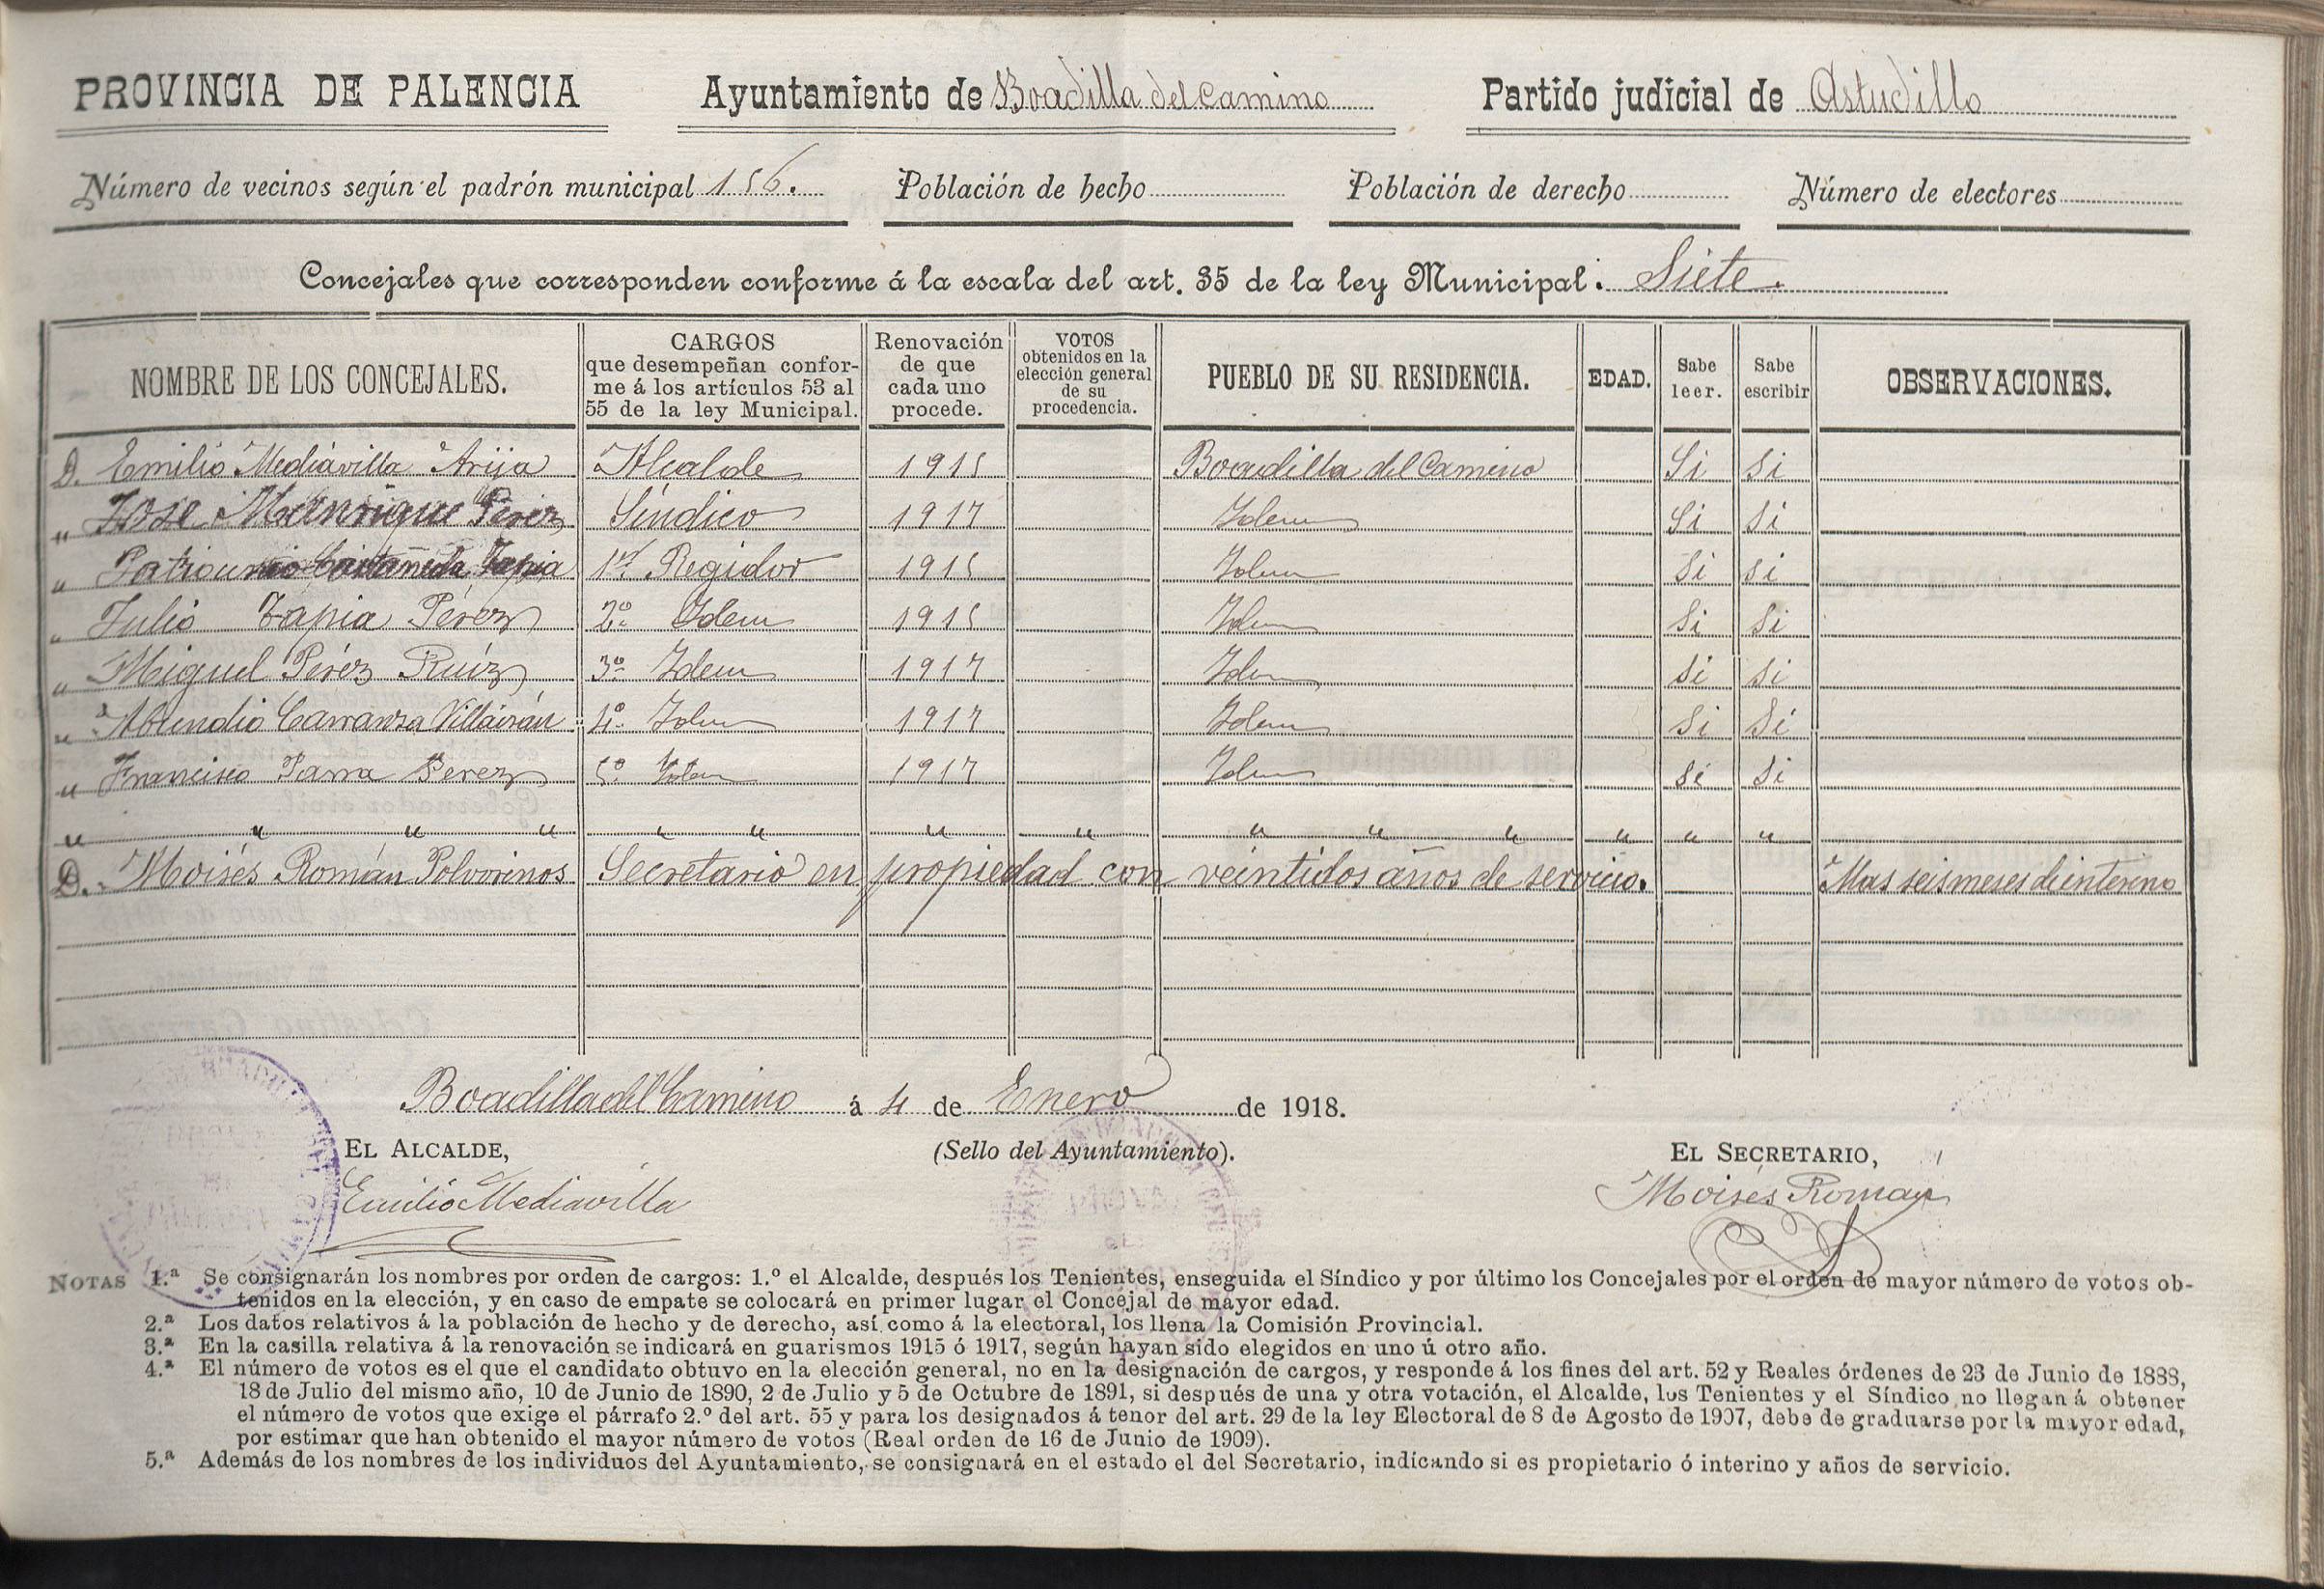 PROVINCIA DE PALENCIA Ayuntamiento de Boadilla del Camino Partido judicial de Astudillo
Número de vecinos según el padrón municipal 156. Población de hecho Población de derecho Número de electores
Concejales que corresponden conforme á la escala del art. 35 de la ley Municipal: Siete.
NOMBRE DE LOS CONCEJALES. CARGOS que desempeñan conforme á los artículos 53 al 55 de la ley Municipal. Renovación de que cada uno procede. VOTOS obtenidos en la elección general de su procedencia. PUEBLO DE SU RESIDENCIA. EDAD. Sabe leer. Sabe escribir OBSERVACIONES.
D. Emilio Mediavilla Arija Alcalde 1915 Boadilla del Camino Si Si
" Jose Manrique Pérez Síndico 1917 Idem Si Si
" Patrocinio Castañeda Tapia 1er Regidor 1915 Idem Si Si
" Julio Tapia Pérez 2º Idem 1915 Idem Si Si
" Miguel Pérez Ruíz 3º Idem 1917 Idem Si Si
" Abundio Carranza Villaizán 4º Idem 1917 Idem Si Si
" Francisco Parra Perez 5º Idem 1917 Idem Si Si
" " " " " " " " " " " " " "
D. Moisés Román Polvorinos Secretario en propiedad con veintidos años de servicio. Mas seis meses de interino
Boadilla del Camino á 4 de Enero de 1918.
EL ALCALDE, (Sello del Ayuntamiento). EL SECRETARIO,
Emilio Mediavilla Moisés Roman
NOTAS 1.ª Se consignarán los nombres por orden de cargos: 1.º el Alcalde, después los Tenientes, enseguida el Síndico y por último los Concejales por el orden de mayor número de votos ob-
tenidos en la elección, y en caso de empate se colocará en primer lugar el Concejal de mayor edad.
2.ª Los datos relativos á la población de hecho y de derecho, así como á la electoral, los llena la Comisión Provincial.
3.ª En la casilla relativa á la renovación se indicará en guarismos 1915 ó 1917, según hayan sido elegidos en uno ú otro año.
4.ª El número de votos es el que el candidato obtuvo en la elección general, no en la designación de cargos, y responde á los fines del art. 52 y Reales órdenes de 23 de Junio de 1888,
18 de Julio del mismo año, 10 de Junio de 1890, 2 de Julio y 5 de Octubre de 1891, si después de una y otra votación, el Alcalde, los Tenientes y el Síndico no llegan á obtener
el número de votos que exige el párrafo 2.º del art. 55 y para los designados á tenor del art. 29 de la ley Electoral de 8 de Agosto de 1907, debe de graduarse por la mayor edad,
por estimar que han obtenido el mayor número de votos (Real orden de 16 de Junio de 1909).
5.ª Además de los nombres de los individuos del Ayuntamiento, se consignará en el estado el del Secretario, indicando si es propietario ó interino y años de servicio.